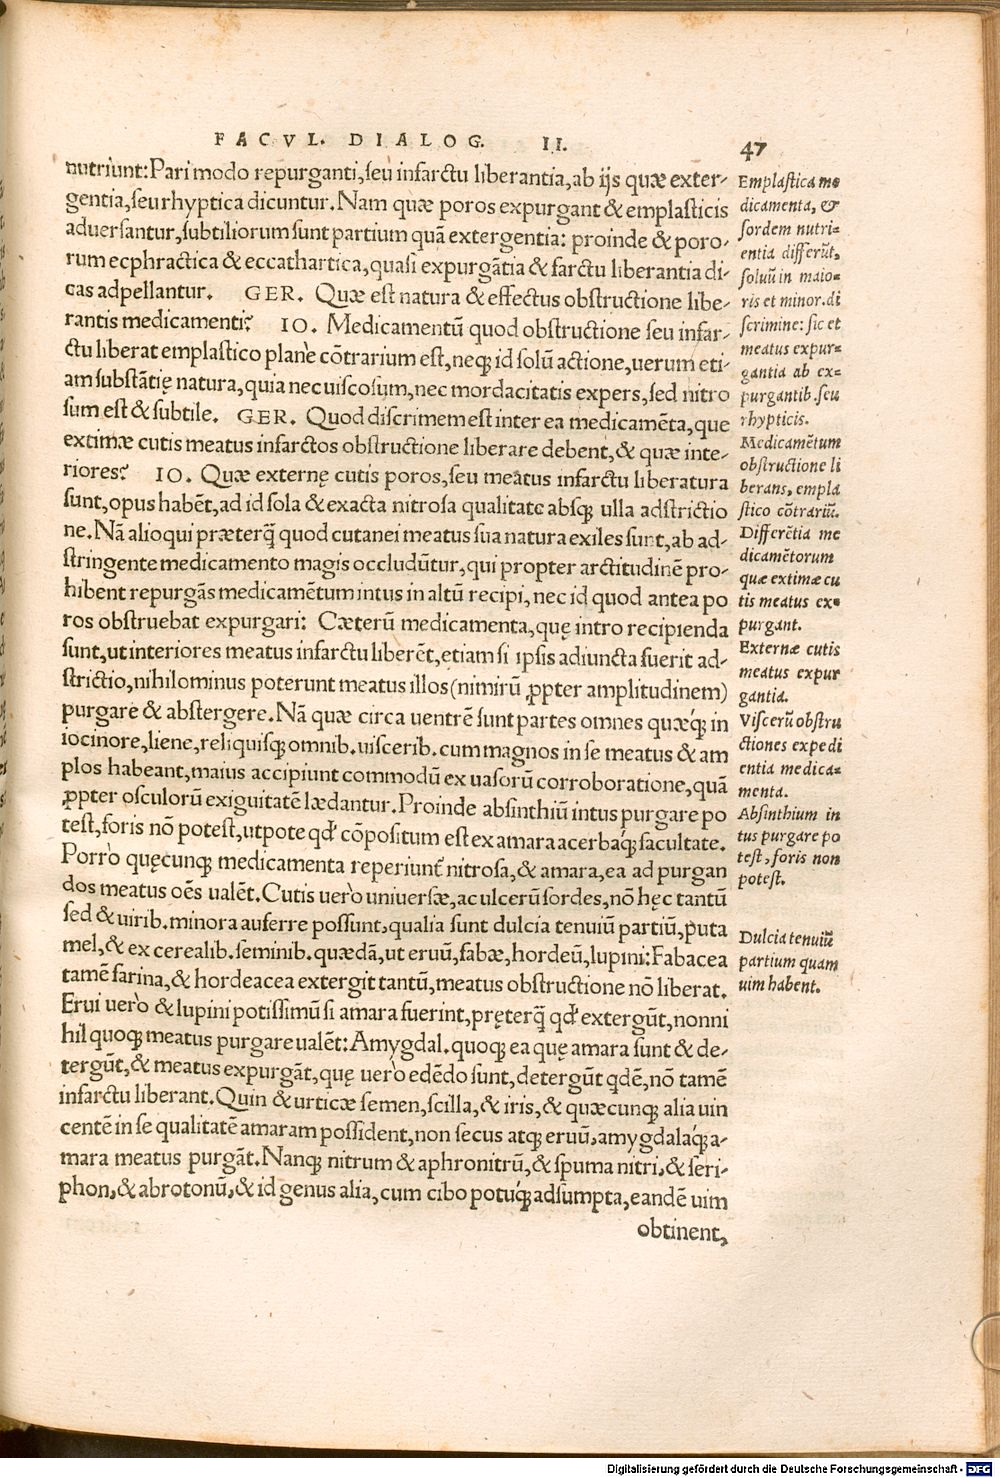 FACVL. DIALOG. II. 47
nutriunt: Pari modo repurganti, seu infarctu liberantia, ab ijs quæ exter-
gentia, seu rhyptica dicuntur. Nam quæ poros expurgant & emplasticis
aduersantur, subtiliorum sunt partium quã extergentia: proinde & poro-
rum ecphractica & eccathartica, quasi expurgãtia & farctu liberantia di-
cas adpellantur. GER. Quæ est natura & effectus obstructione libe-
rantis medicamenti? IO. Medicamentũ quod obstructione seu infar-
ctu liberat emplastico planè cõtrarium est, neq; id solũ actione, uerum eti-
am substãtię natura, quia nec uiscosum, nec mordacitatis expers, sed nitro
sum est & subtile. GER. Quod discrimem est inter ea medicamẽta, que
extimæ cutis meatus infarctos obstructione liberare debent, & quæ inte-
riores? IO. Quæ externę cutis poros, seu meatus infarctu liberatura
sunt, opus habẽt, ad id sola & exacta nitrosa qualitate absq; ulla adstrictio
ne. Nã alioqui præterq̃ quod cutanei meatus sua natura exiles sunt, ab ad-
stringente medicamento magis occludũtur, qui propter arctitudinẽ pro-
hibent repurgãs medicamẽtum intus in altũ recipi, nec id quod antea po
ros obstruebat expurgari: Cæterũ medicamenta, quę intro recipienda
sunt, ut interiores meatus infarctu liberẽt, etiam si ipsis adiuncta fuerit ad-
strictio, nihilominus poterunt meatus illos (nimirũ ꝓpter amplitudinem)
purgare & abstergere. Nã quæ circa uentrẽ sunt partes omnes quæq́; in
iocinore, liene, reliquisq; omnib. uiscerib. cum magnos in se meatus & am
plos habeant, maius accipiunt commodũ ex uasorũ corroboratione, quã
ꝓpter osculorũ exiguitatẽ lædantur. Proinde absinthiũ intus purgare po
test, foris nõ potest, utpote qđ cõpositum est ex amara acerbaq́; facultate.
Porrò quęcunq; medicamenta reperiunt̃ nitrosa, & amara, ea ad purgan
dos meatus oẽs ualẽt. Cutis uerò uniuersæ, ac ulcerũ sordes, nõ hęc tantũ
sed & uirib. minora auferre possunt, qualia sunt dulcia tenuiũ partiũ, puta
mel, & ex cerealib. seminib. quædã, ut eruũ, fabæ, hordeũ, lupini: Fabacea
tamẽ farina, & hordeacea extergit tantũ, meatus obstructione nõ liberat.
Erui uerò & lupini potissimũ si amara fuerint, pręterq̃ qđ extergũt, nonni
hil quoq; meatus purgare ualẽt: Amygdal. quoq; ea quę amara sunt & de-
tergũt, & meatus expurgãt, quę uerò edẽdo sunt, detergũt qdẽ, nõ tamẽ
infarctu liberant. Quin & urticæ semen, scilla, & iris, & quæcunq; alia uin
centẽ in se qualitatẽ amaram possident, non secus atq; eruũ, amygdalæq́; a-
mara meatus purgãt. Nanq; nitrum & aphronitrũ, & spuma nitri, & seri-
phon, & abrotonũ, & id genus alia, cum cibo potuq́; adsumpta, eandẽ uim
obtinent,
Emplastica me
dicamenta, &
sordem nutri-
entia differũt,
soluũ in maio-
ris et minor. di
scrimine: sic et
meatus expur-
gantia ab ex-
purgantib. seu
rhypticis.
Medicamẽtum
obstructione li
berans, empla
stico cõtrariũ.
Differẽtia me
dicamẽtorum
quæ extimæ cu
tis meatus ex-
purgant.
Externæ cutis
meatus expur
gantia.
Viscerũ obstru
ctiones expedi
entia medica-
menta.
Absinthium in
tus purgare po
test, foris non
potest.
Dulcia tenuiũ
partium quam
uim habent.
Digitalisierung gefördert durch die Deutsche Forschungsgemeinschaft - DFG